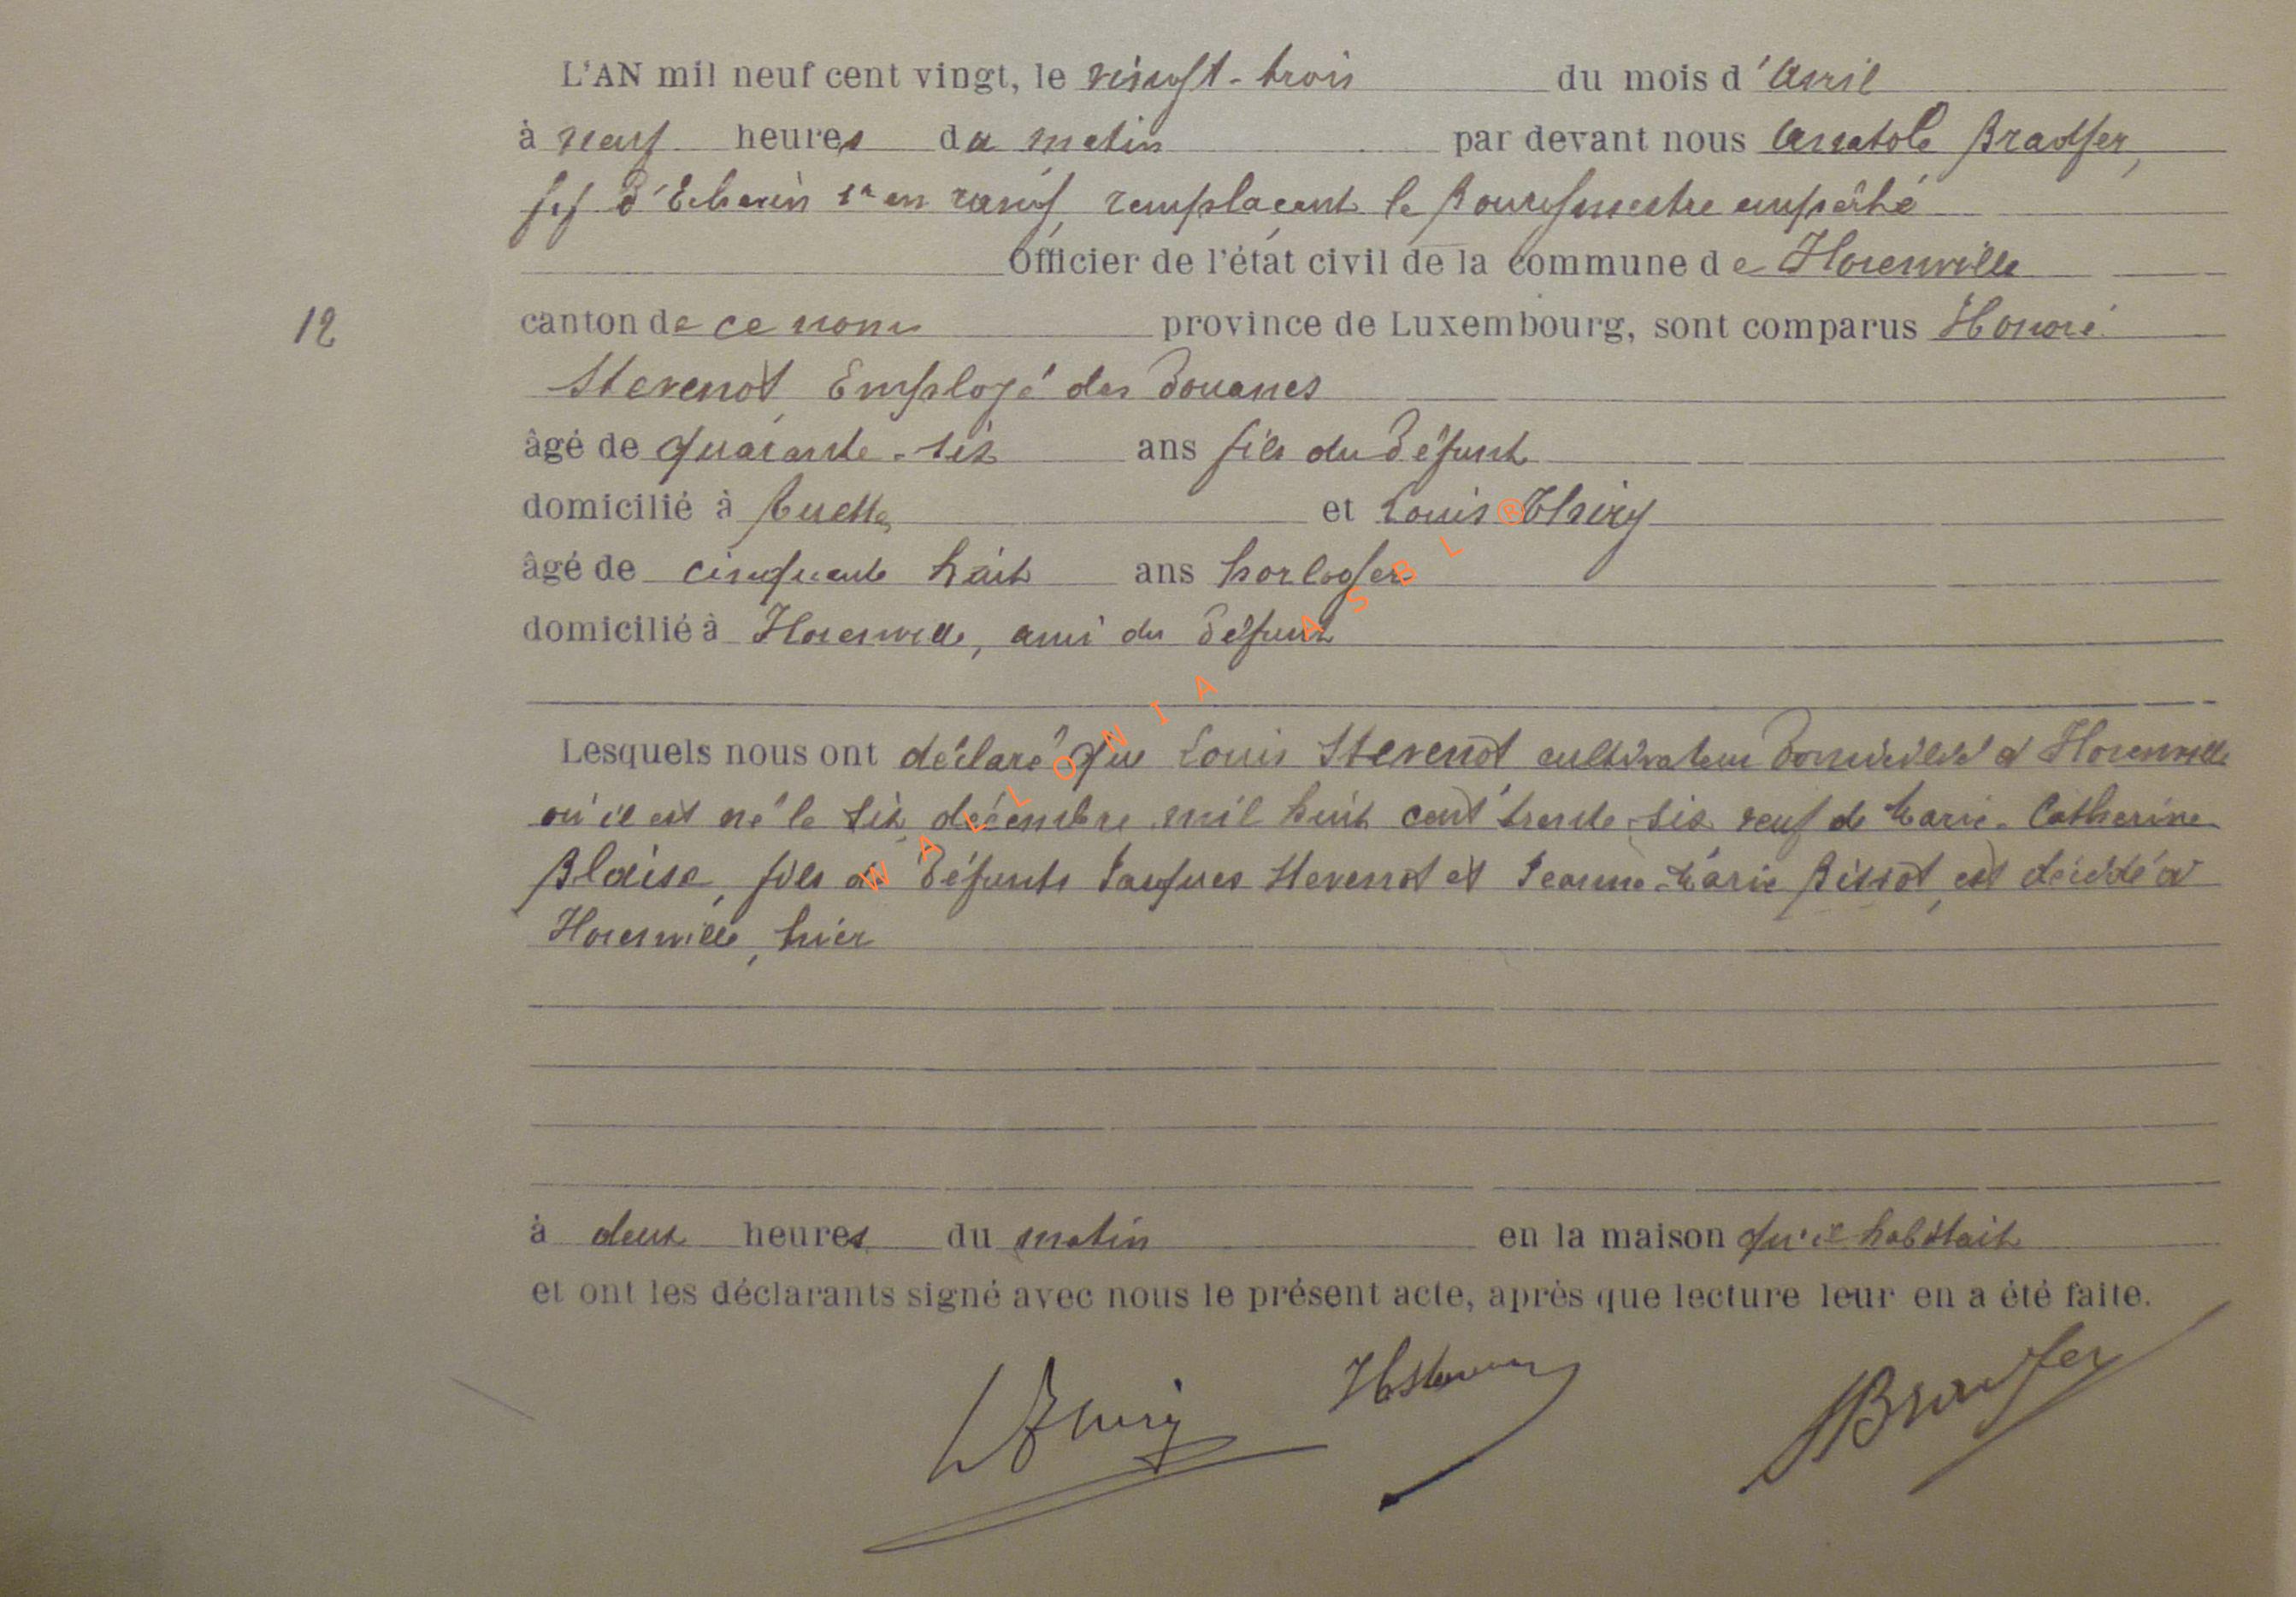 L'AN mil neuf cent vingt, le vingt-trois du mois d'Avril
à neuf heures du matin par devant nous Anatole Bradfer,
ff d'Echevin 1er en rang remplaçant le Bourgmestre empêché
Officier de l'état civil de la commune de Florenville
12 canton de ce nom province de Luxembourg, sont comparus Honoré
Stevenot Employé des Douanes
âgé de quarante-six ans fils du défunt
domicilié à et Louis Thiry
âgé de cinquante huit ans horloger
domicilié à Florenville, ami du défunt
Lesquels nous ont déclaré que Louis Stevenot cultivateur domicilié à Florenville
où il est né le six décembre mil huit cent trente-six veuf de Marie-Catherine
Blaise, fils de défunts Jacques Stevenot et Jeanne-Marie Bissot, est décédé à
Florenville, hier
à deux heures du matin en la maison qu'il habitait
et ont les déclarants signé avec nous le présent acte, après que lecture leur en a été faite.
LThiry HStevenot ABradfer
WALLONIA ASBL ®